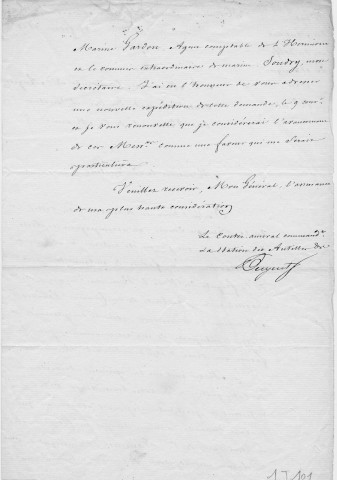 Marine Gardon, Agent comptable de l'
et le commis extraordinaire de marine Soudry, mon
secrétaire. J'ai eu l'honneur de vous adresser
une nouvelle expédition de cette demande, le 9 mai
et je vous renouvelle que je considérerai l'avancement
de ces Messrs comme une faveur qui me serait
particulière.
Veuillez recevoir, Mon Général, l'assurance
de ma plus haute considération,
Le Contre amiral commandt
la station des Antilles &c